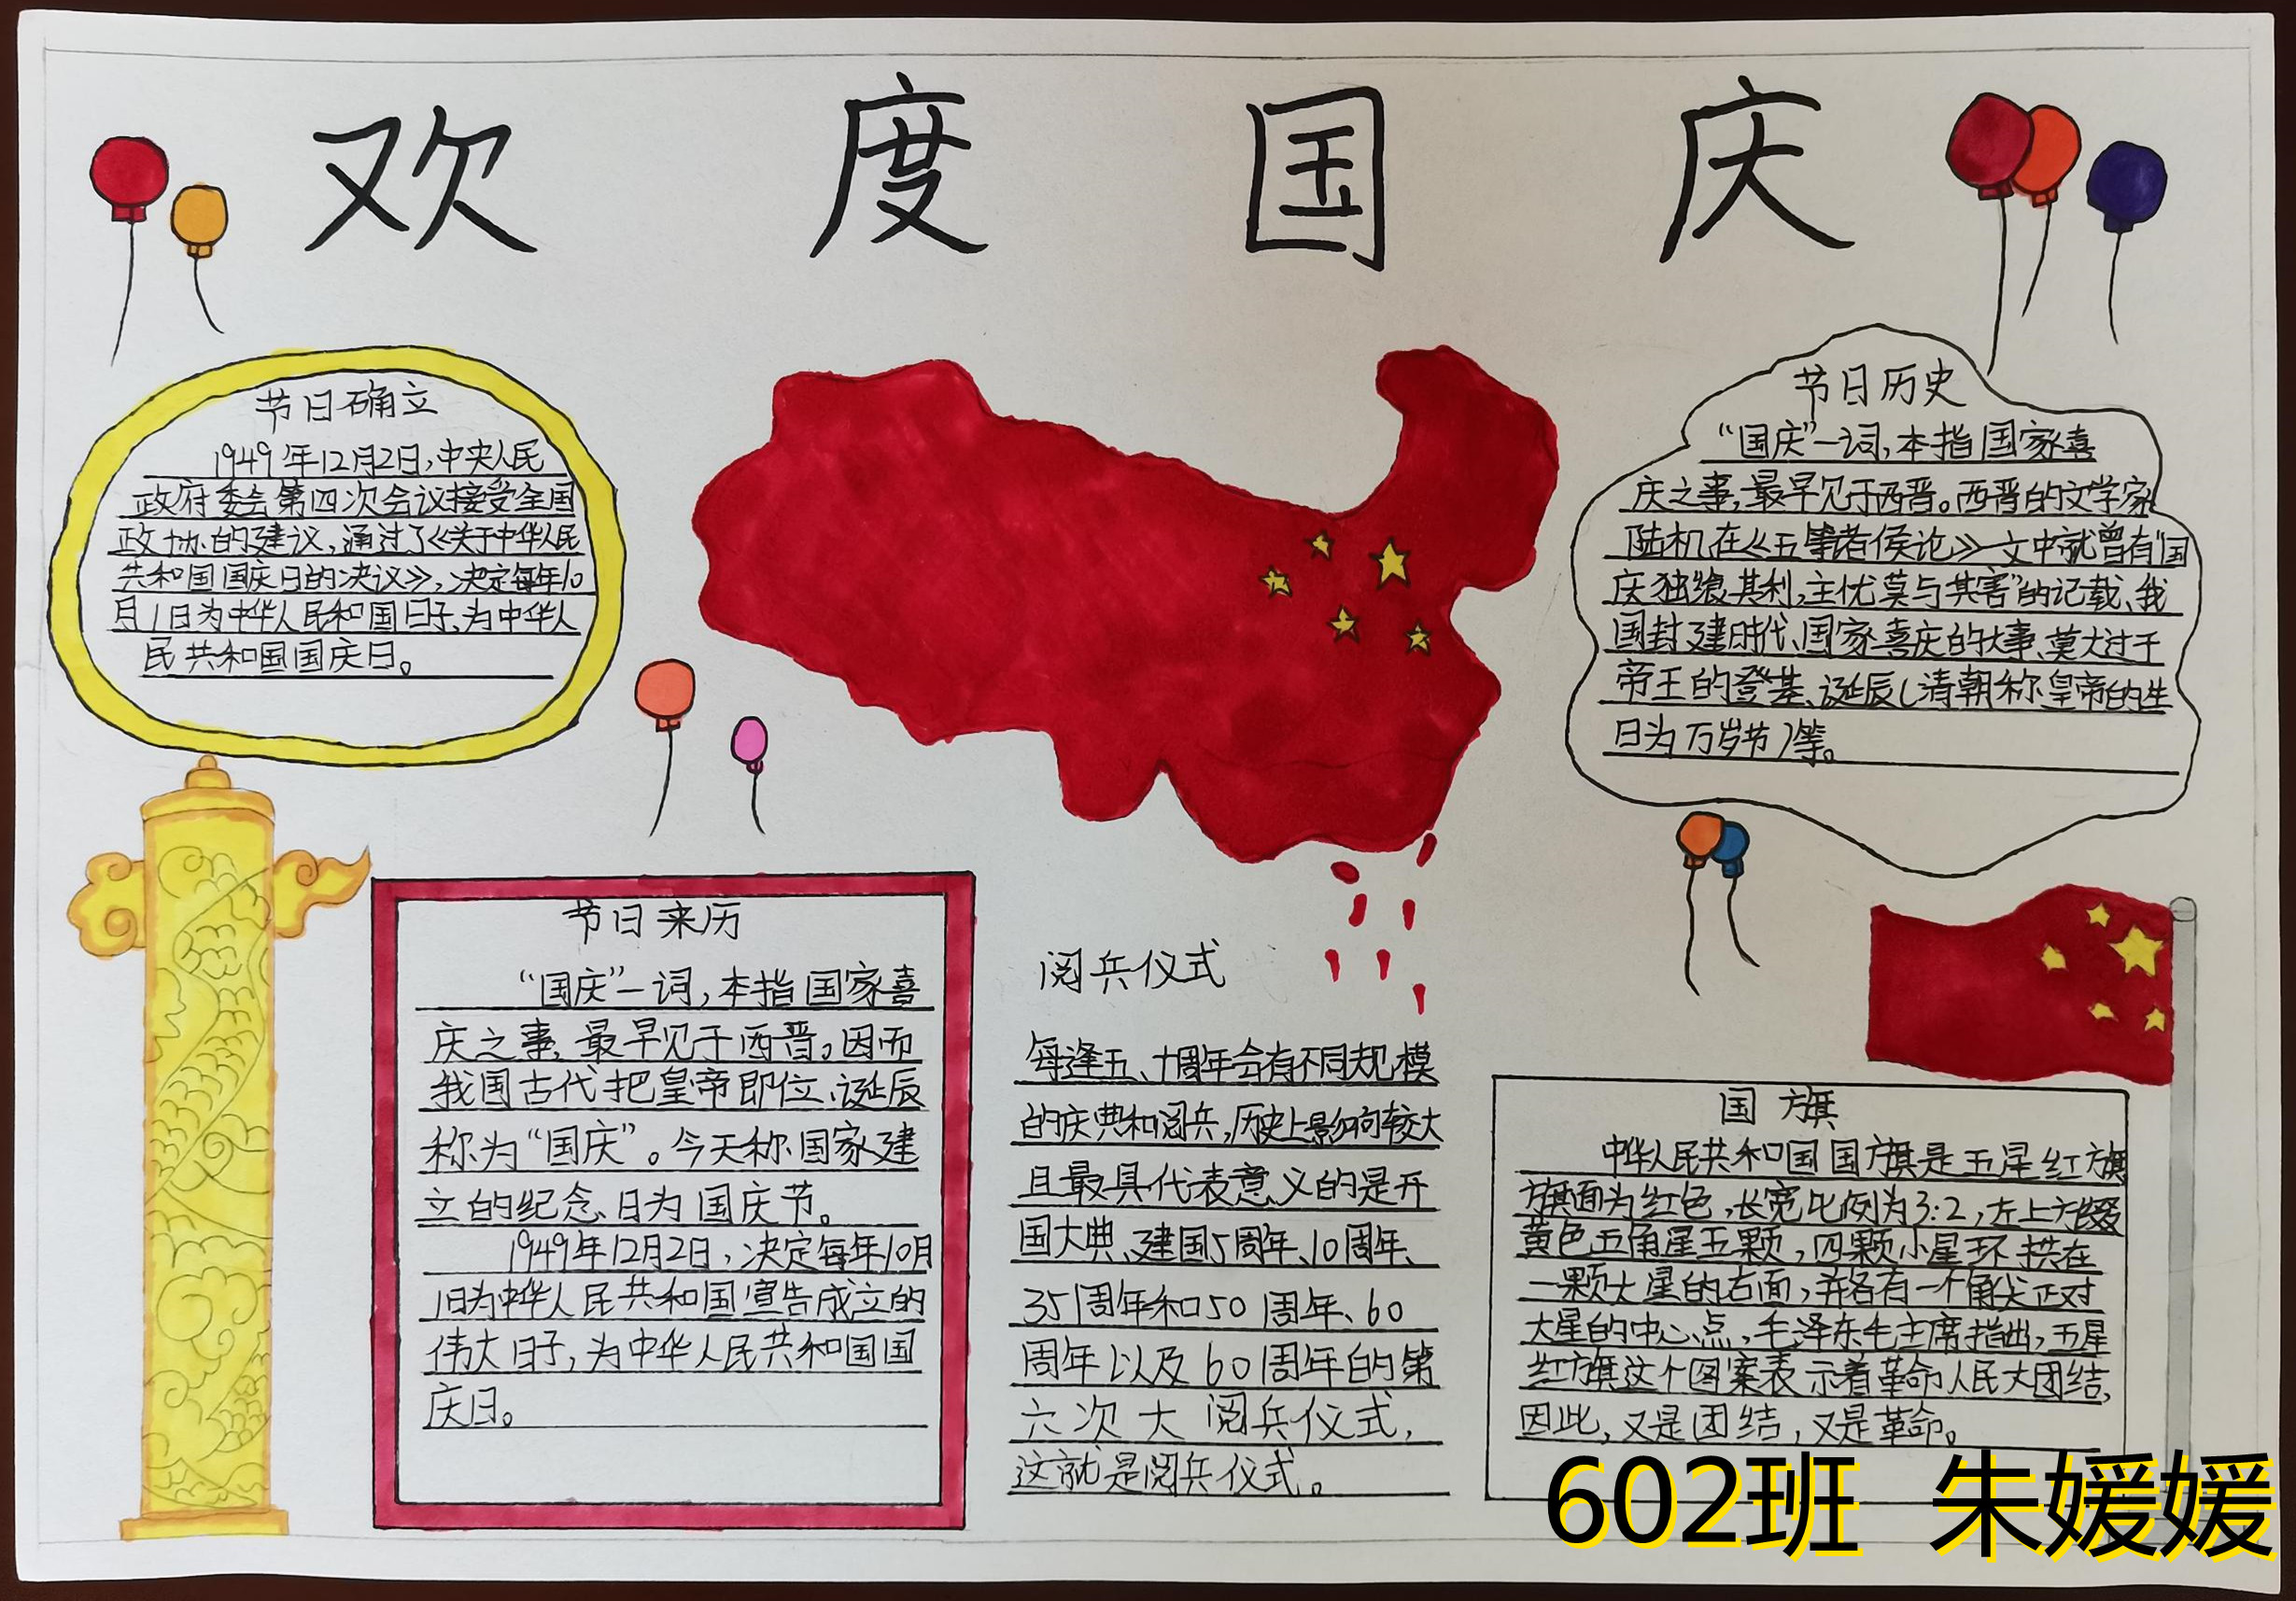 欢度国庆
节日确立
1949年12月2日,中央人民
政府委会第四次会议接受全国
政协的建议,通过了《关于中华人民
共和国国庆日的决议》,决定每年10
月1日为中华人民和国日子、为中华人
民共和国国庆日。
节日历史
“国庆”一词,本指国家喜
庆之事,最早见于西晋。西晋的文学家
陆机在《五等诸侯论》一文中就曾有“国
庆独飨其利,主忧莫与其害”的记载、我
国封建时代、国家喜庆的大事、莫大过于
帝王的登基、诞辰(清朝称皇帝的生
日为万岁节)等。
节日来历
“国庆”一词,本指国家喜
庆之事、最早见于西晋。因而
我国古代把皇帝即位、诞辰
称为“国庆”。今天称国家建
立的纪念日为国庆节。
1949年12月2日,决定每年10月
1日为中华人民共和国宣告成立的
伟大日子,为中华人民共和国国
庆日。
阅兵仪式
每逢五、十周年会有不同规模
的庆典和阅兵,历史上影响较大
且最具代表意义的是开
国大典、建国5周年、10周年、
35周年和50周年、60
周年以及60周年的第
六次大阅兵仪式,
这就是阅兵仪式。
国旗
中华人民共和国国旗是五星红旗
旗面为红色,长宽比例为3:2,左上方缀
黄色五角星五颗,四颗小星环拱在
一颗大星的右面,并各有一个角尖正对
大星的中心点,毛泽东毛主席指出,五星
红旗这个图案表示着革命人民大团结,
因此,又是团结,又是革命。
602班 朱媛媛